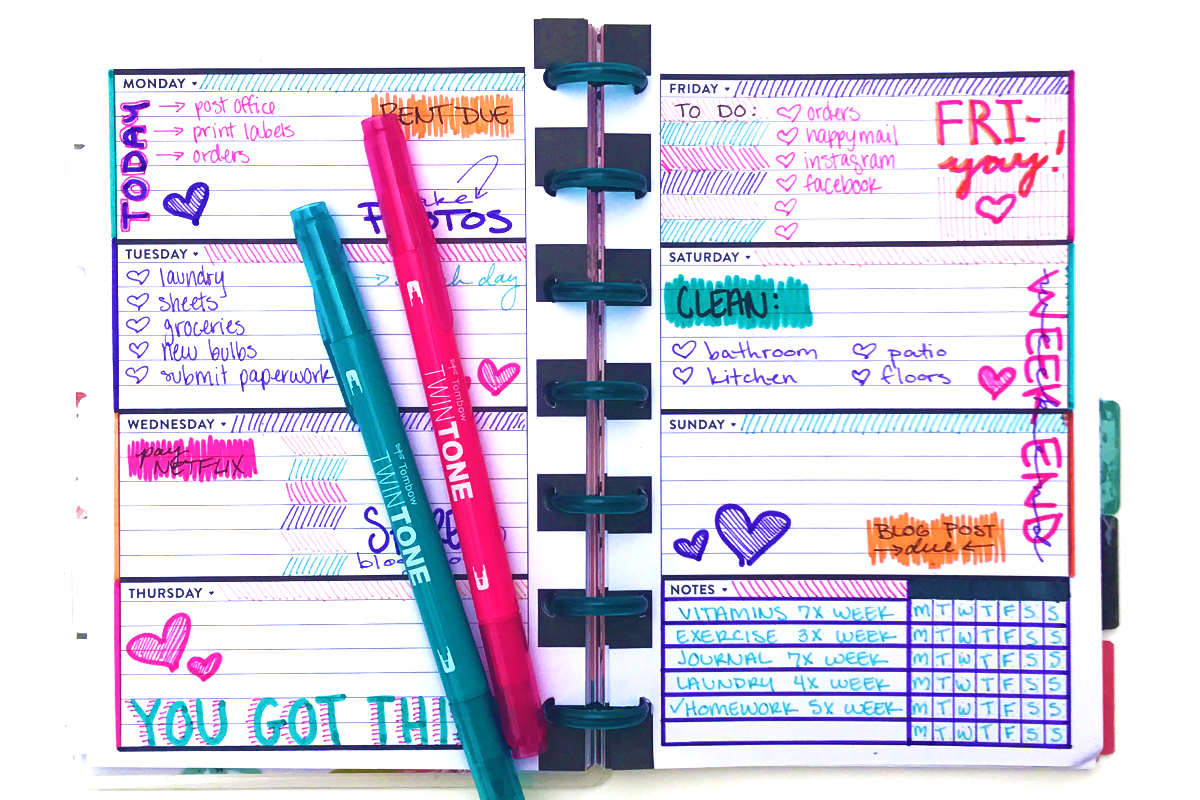 MONDAY
TODAY
→ post office
→ print labels
→ orders
RENT DUE
PHOTOS
TUESDAY
laundry
sheets
groceries
new bulbs
submit paperwork
day
WEDNESDAY
pay
NETFLIX
THURSDAY
YOU GOT
TWINTONE
by Tombow
TWINTONE
by Tombow
FRIDAY
TO DO:
orders
happy mail
instagram
facebook
FRI-
yay!
SATURDAY
CLEAN:
bathroom
patio
kitchen
floors
WEEKEND
SUNDAY
BLOG POST
→ due ←
NOTES
VITAMINS 7X WEEK M T W T F S S
EXERCISE 3X WEEK M T W T F S S
JOURNAL 7X WEEK M T W T F S S
LAUNDRY 4X WEEK M T W T F S S
✓HOMEWORK 5X WEEK M T W T F S S
M T W T F S S